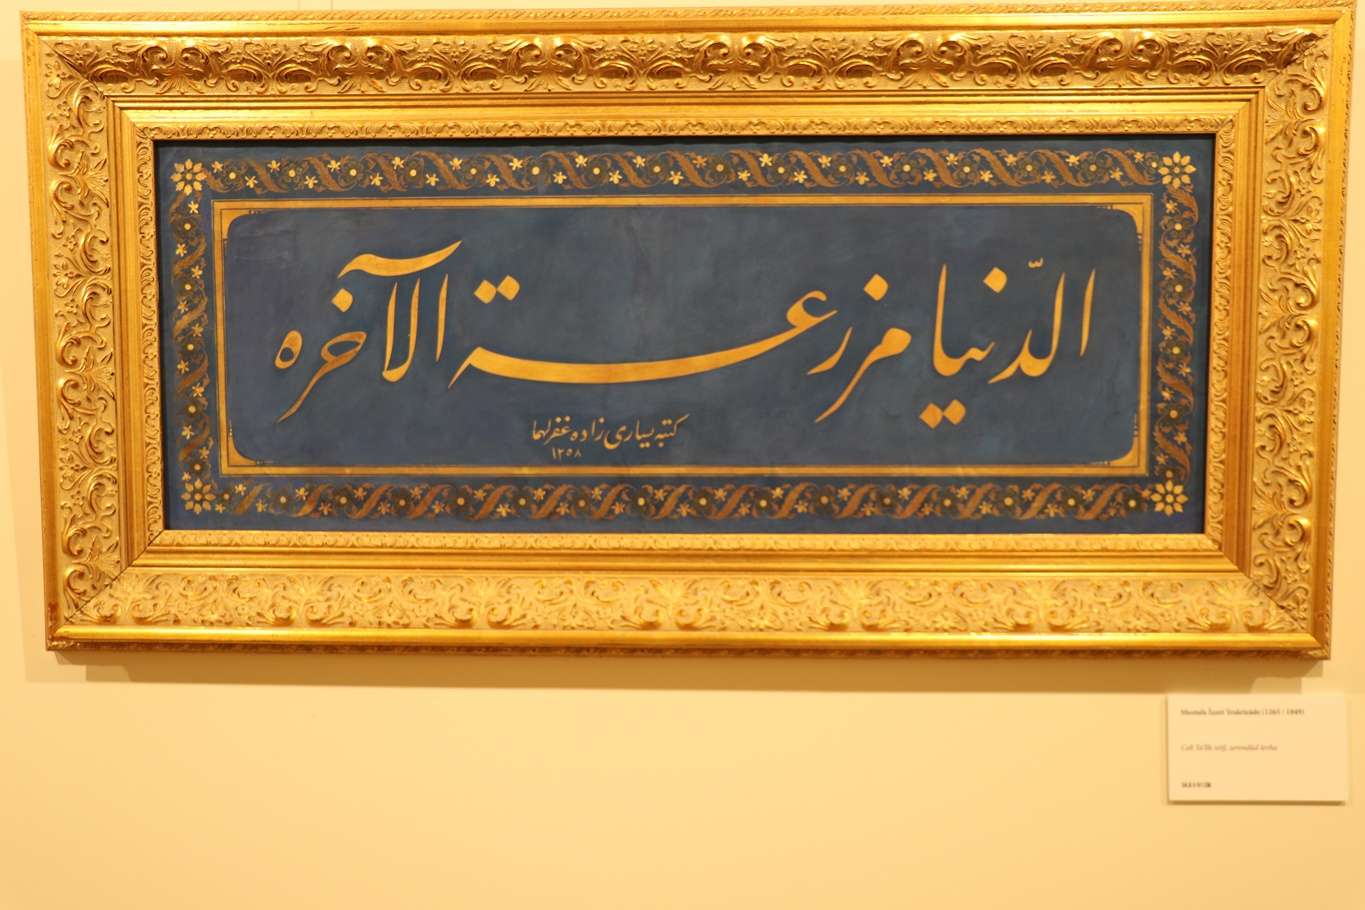 الدّنيا مزرعة الآخره
كتبه يساری زاده غفرلهما
١٢٥٨
Mustafa İzzet Yesârîzâde (1265 / 1849)
Celî Ta'lîk yazı, zerendûd levha